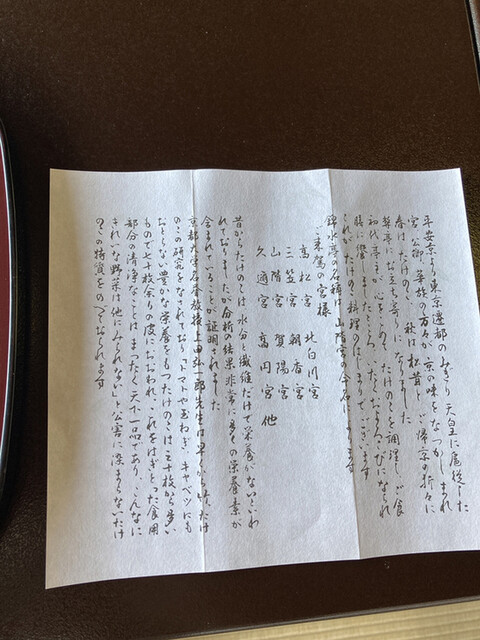 平安京より東京遷都のみぎり 天皇に扈従した
宮 公卿 華族の方々が 京の味をなつかしまれ
春はたけのこ 秋は松茸と ご帰京の折々に
弊亭にお立ち寄りになりました
初代亭主が心をこめて たけのこを調理し ご食
膳に供しましたところ たいそうおよろこびになられ
これがたけのこ料理のはじまりでございます
錦水亭の名称は 山階宮の命名によります
ご来駕の宮様
高松宮 北白川宮
三笠宮 朝香宮
山階宮 賀陽宮
久邇宮 高円宮 他
昔からたけのこは 水分と繊維だけで栄養がないといわ
れておりましたが分析の結果 非常に多くの栄養素が
含まれていることが証明されました
京都大学名誉教授 上田弘一郎先生は早くから 竹、たけ
のこの研究をなされており「トマトや玉ねぎ、キャベツにも
おとらない豊かな栄養をもったたけのこは三十枚から多い
もので七十枚余りもの皮におおわれ これをはぎとった食用
部分の清浄なことは まったく天下一品であり、こんなに
きれいな野菜は他にみられない」と公害に染まらないたけ
のこの特質をのべておられます